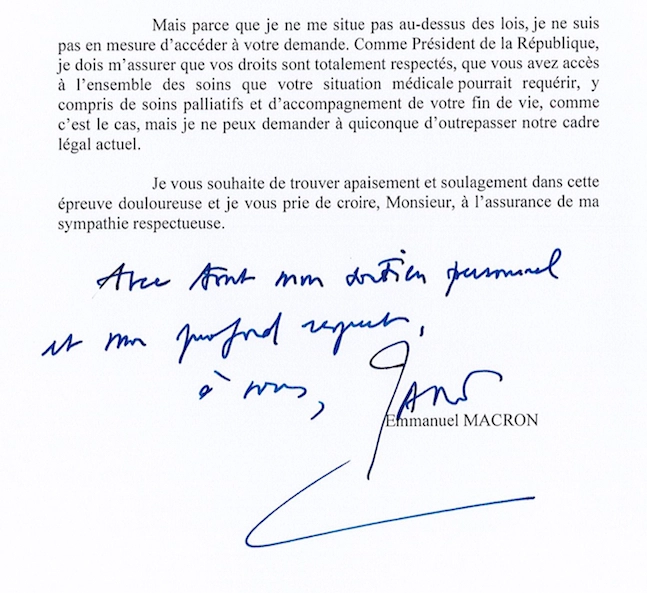 Mais parce que je ne me situe pas au-dessus des lois, je ne suis
pas en mesure d'accéder à votre demande. Comme Président de la République,
je dois m'assurer que vos droits sont totalement respectés, que vous avez accès
à l'ensemble des soins que votre situation médicale pourrait requérir, y
compris de soins palliatifs et d'accompagnement de votre fin de vie, comme
c'est le cas, mais je ne peux demander à quiconque d'outrepasser notre cadre
légal actuel.
Je vous souhaite de trouver apaisement et soulagement dans cette
épreuve douloureuse et je vous prie de croire, Monsieur, à l'assurance de ma
sympathie respectueuse.
Avec tout mon soutien personnel
et mon profond respect,
à vous,
Emmanuel MACRON